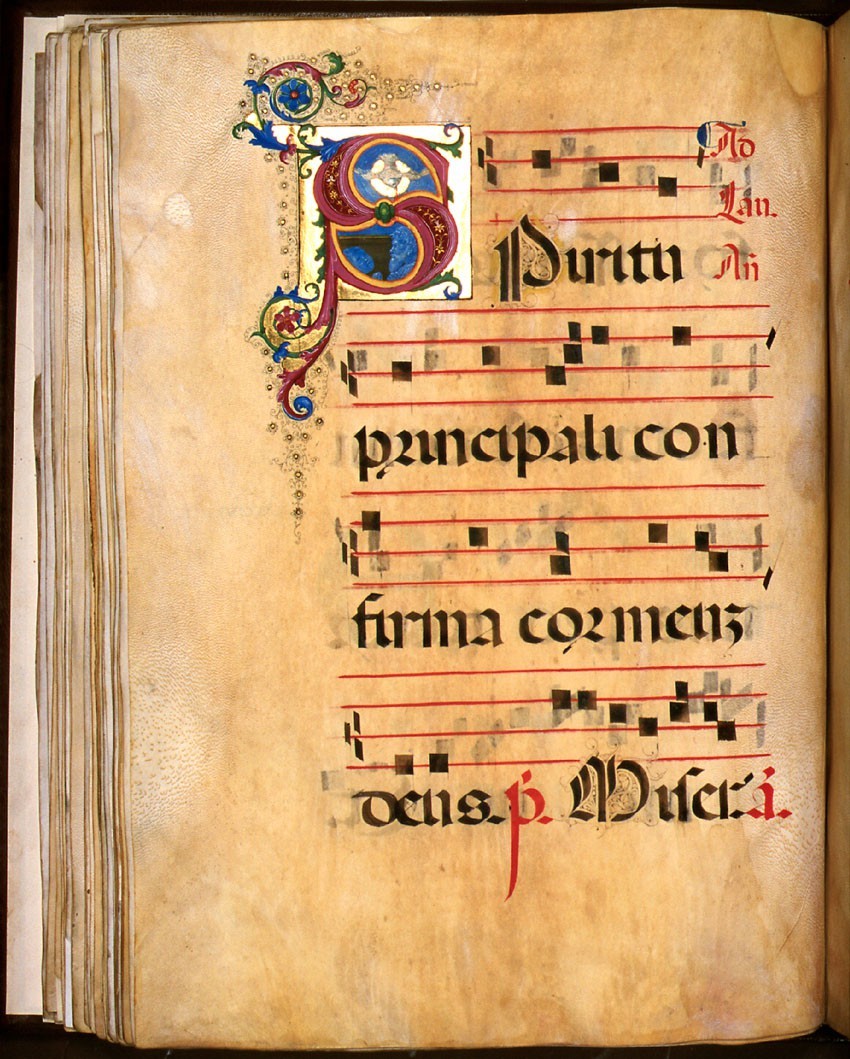 Ad
Lau.
SPiritu Añ
principali con
firma cor meuz
deus. p̃. Miser. ã.